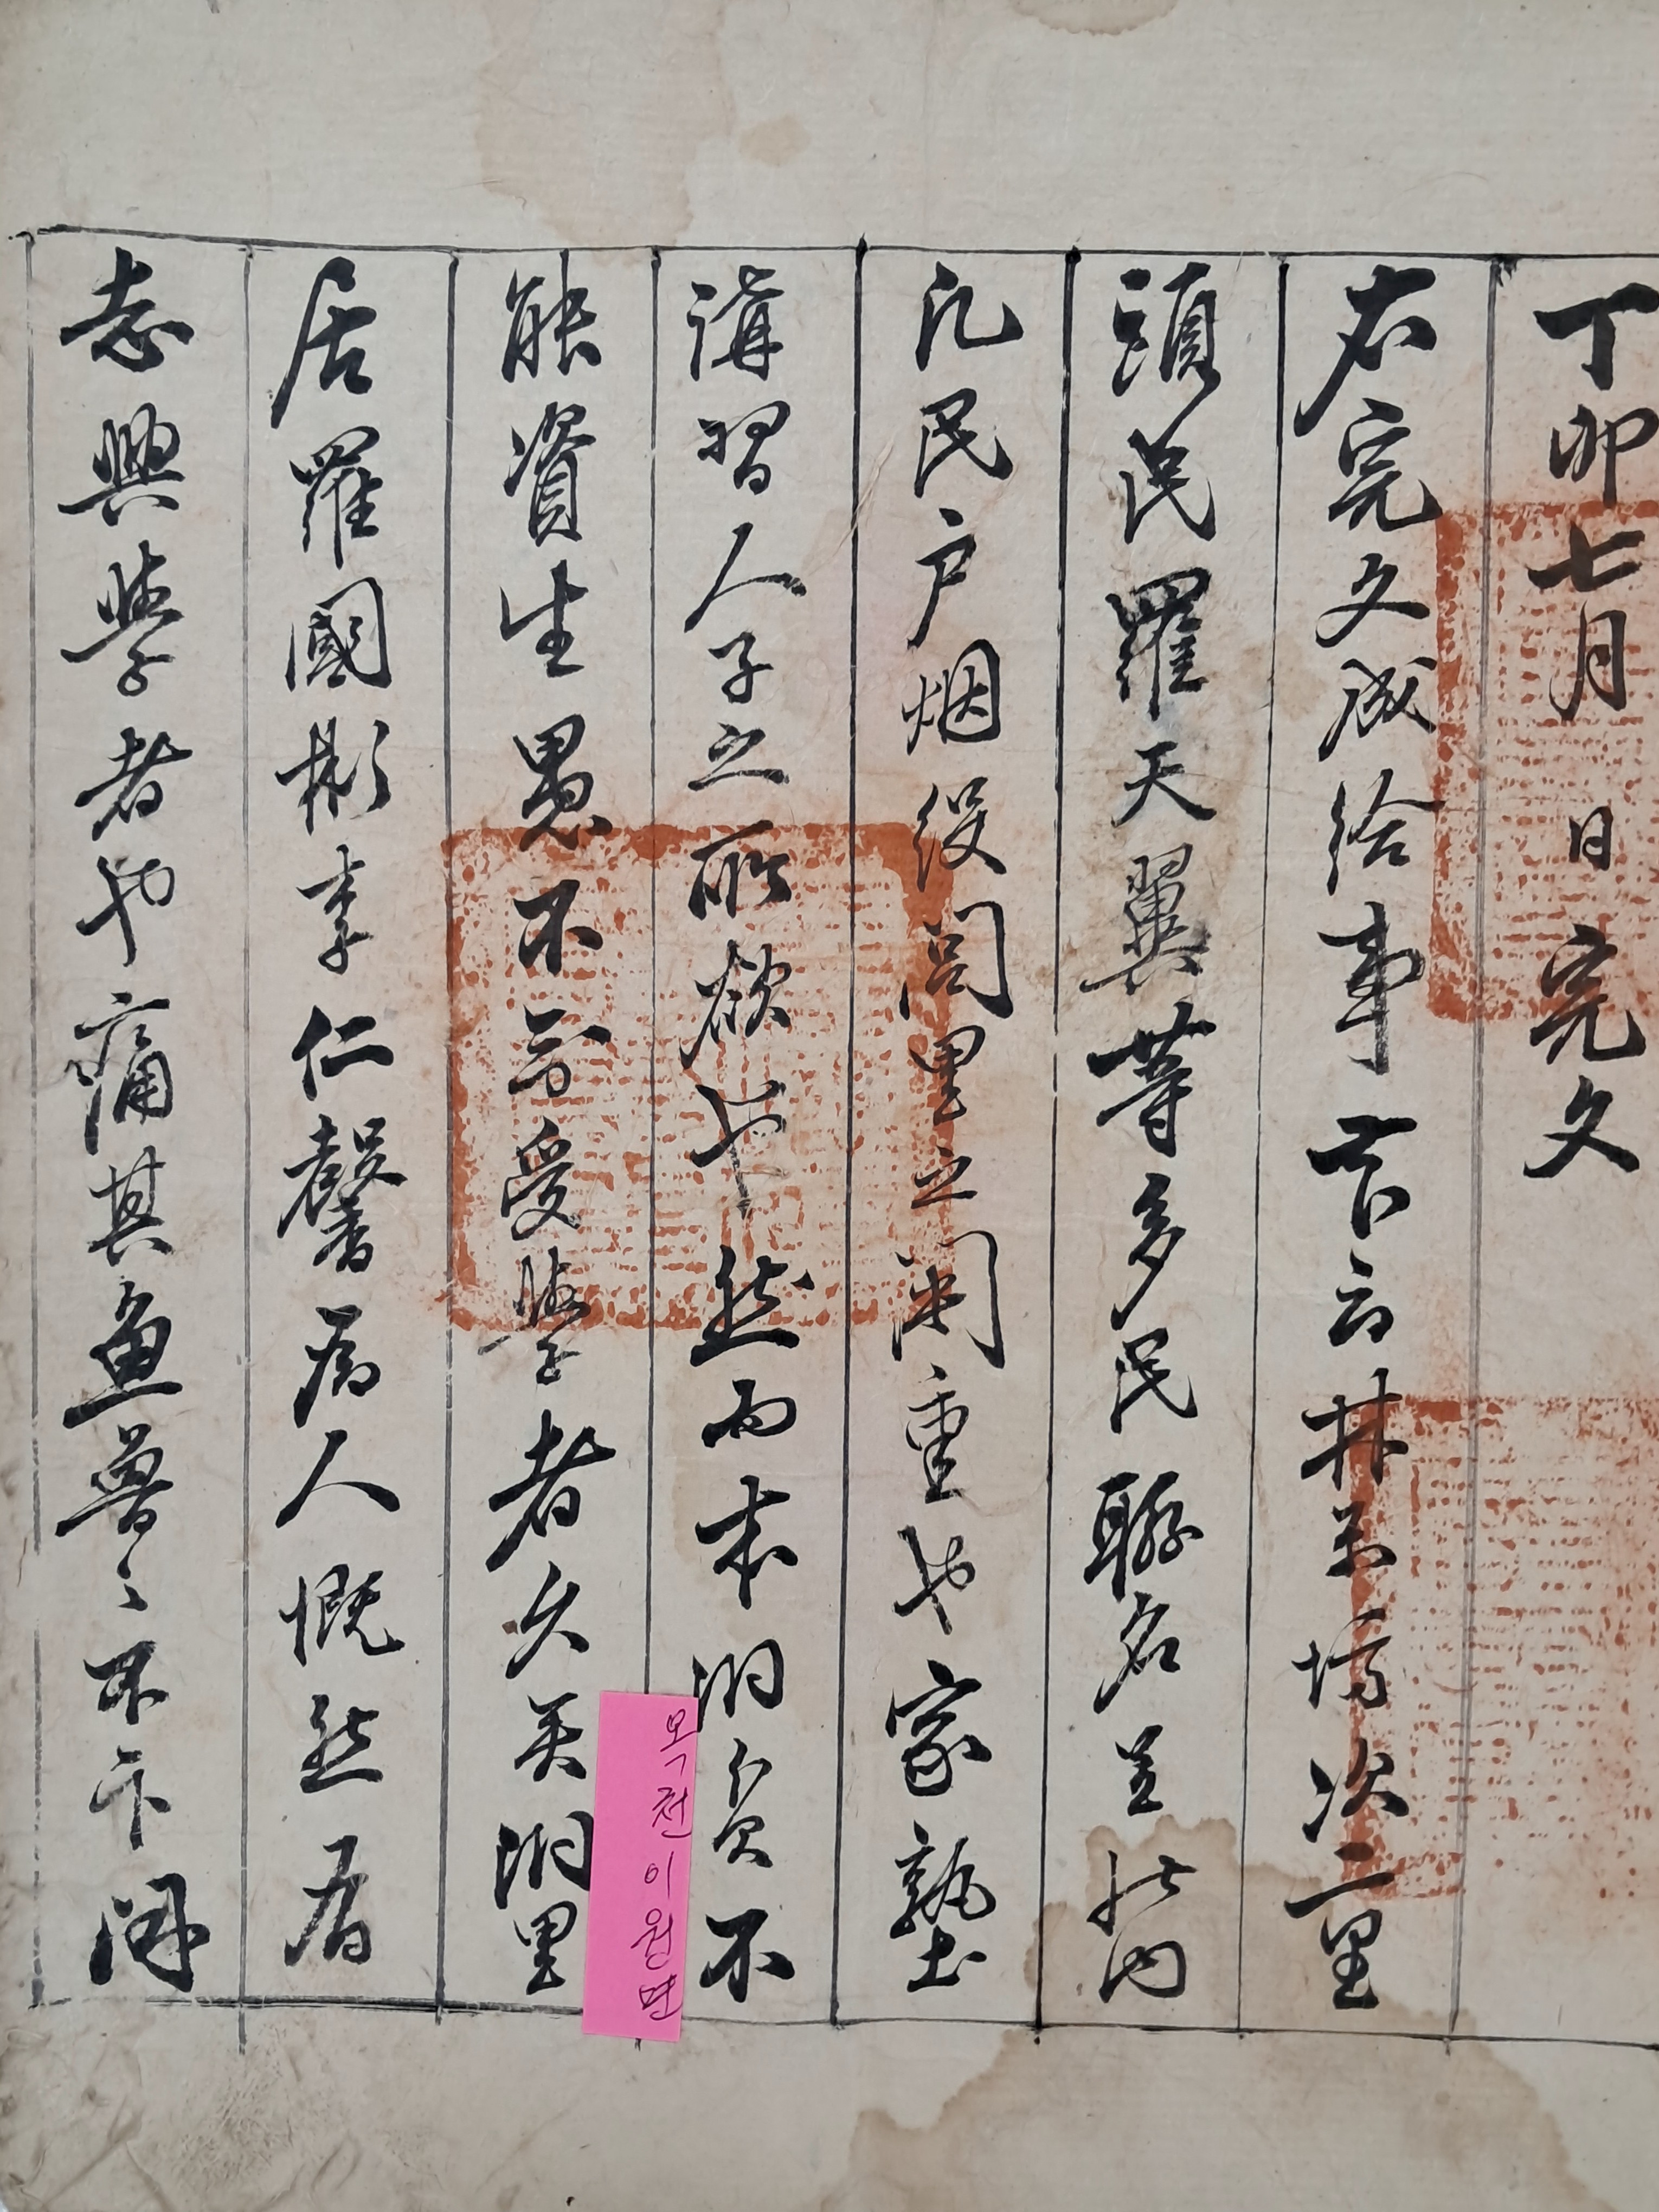 丁卯七月 日完文
右完文成給事下云 坊次二里
頭民羅天翼等多民聯名呈狀內
凡民戶烟役閭里之関重也家塾
講習人子之所欲也然而本洞貧不
能資生愚不 受學者久矣洞里
居羅國彬李仁馨爲人慨然有
志興學者也痛其魚魯之不卞開
목천이원면